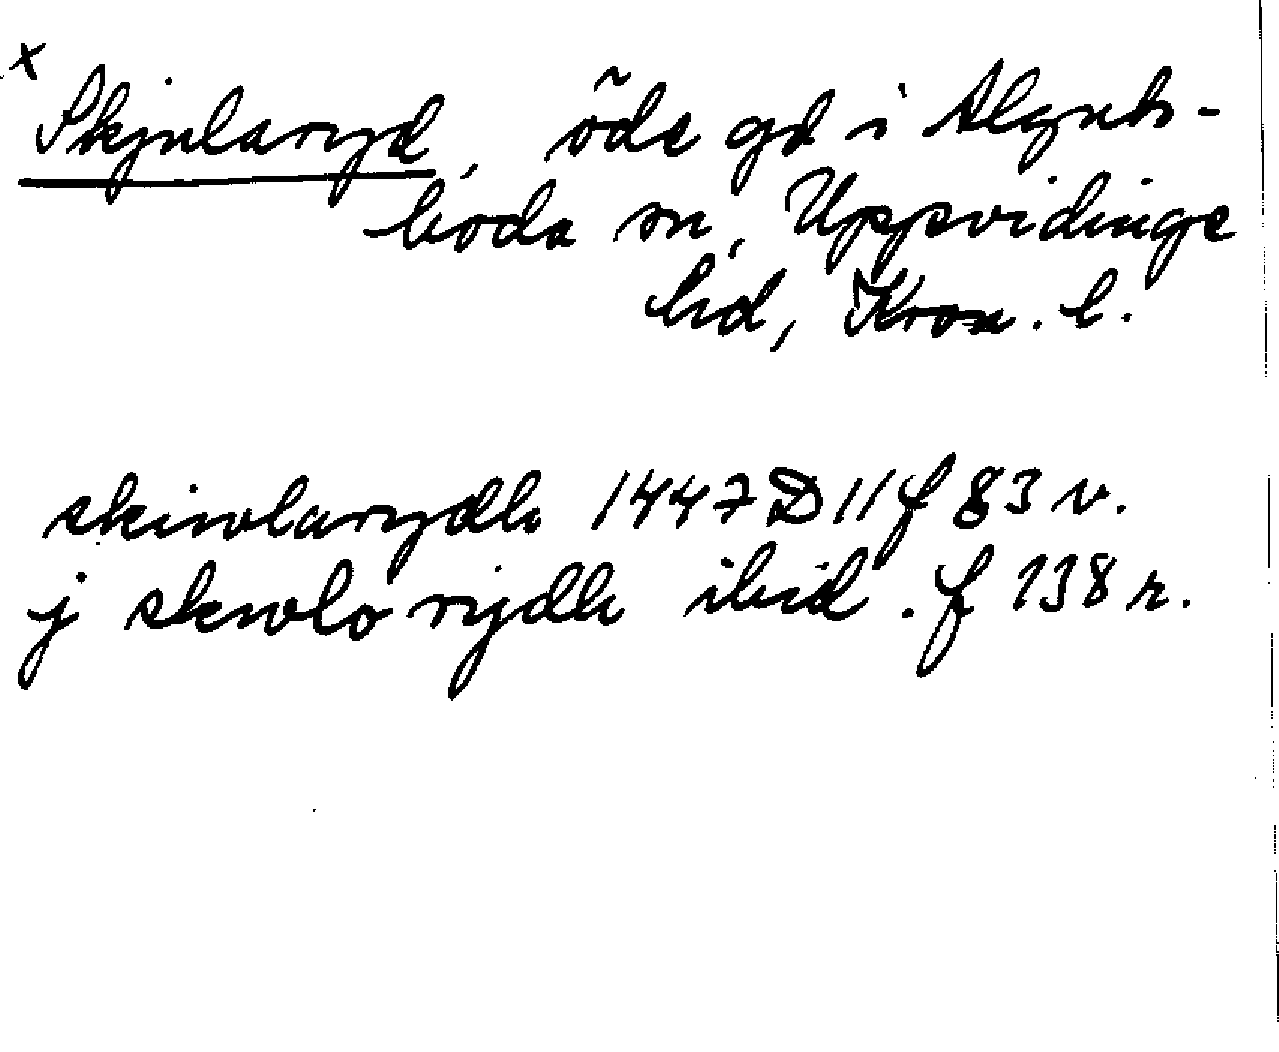 x
Skjularyd, öde gd i Alguts-
boda sn, Uppvidinge
hd, Kron. l.
skiwlarydh 1447 D 11 f 83 v.
j skiwlo rydh ibid. f 138 r.